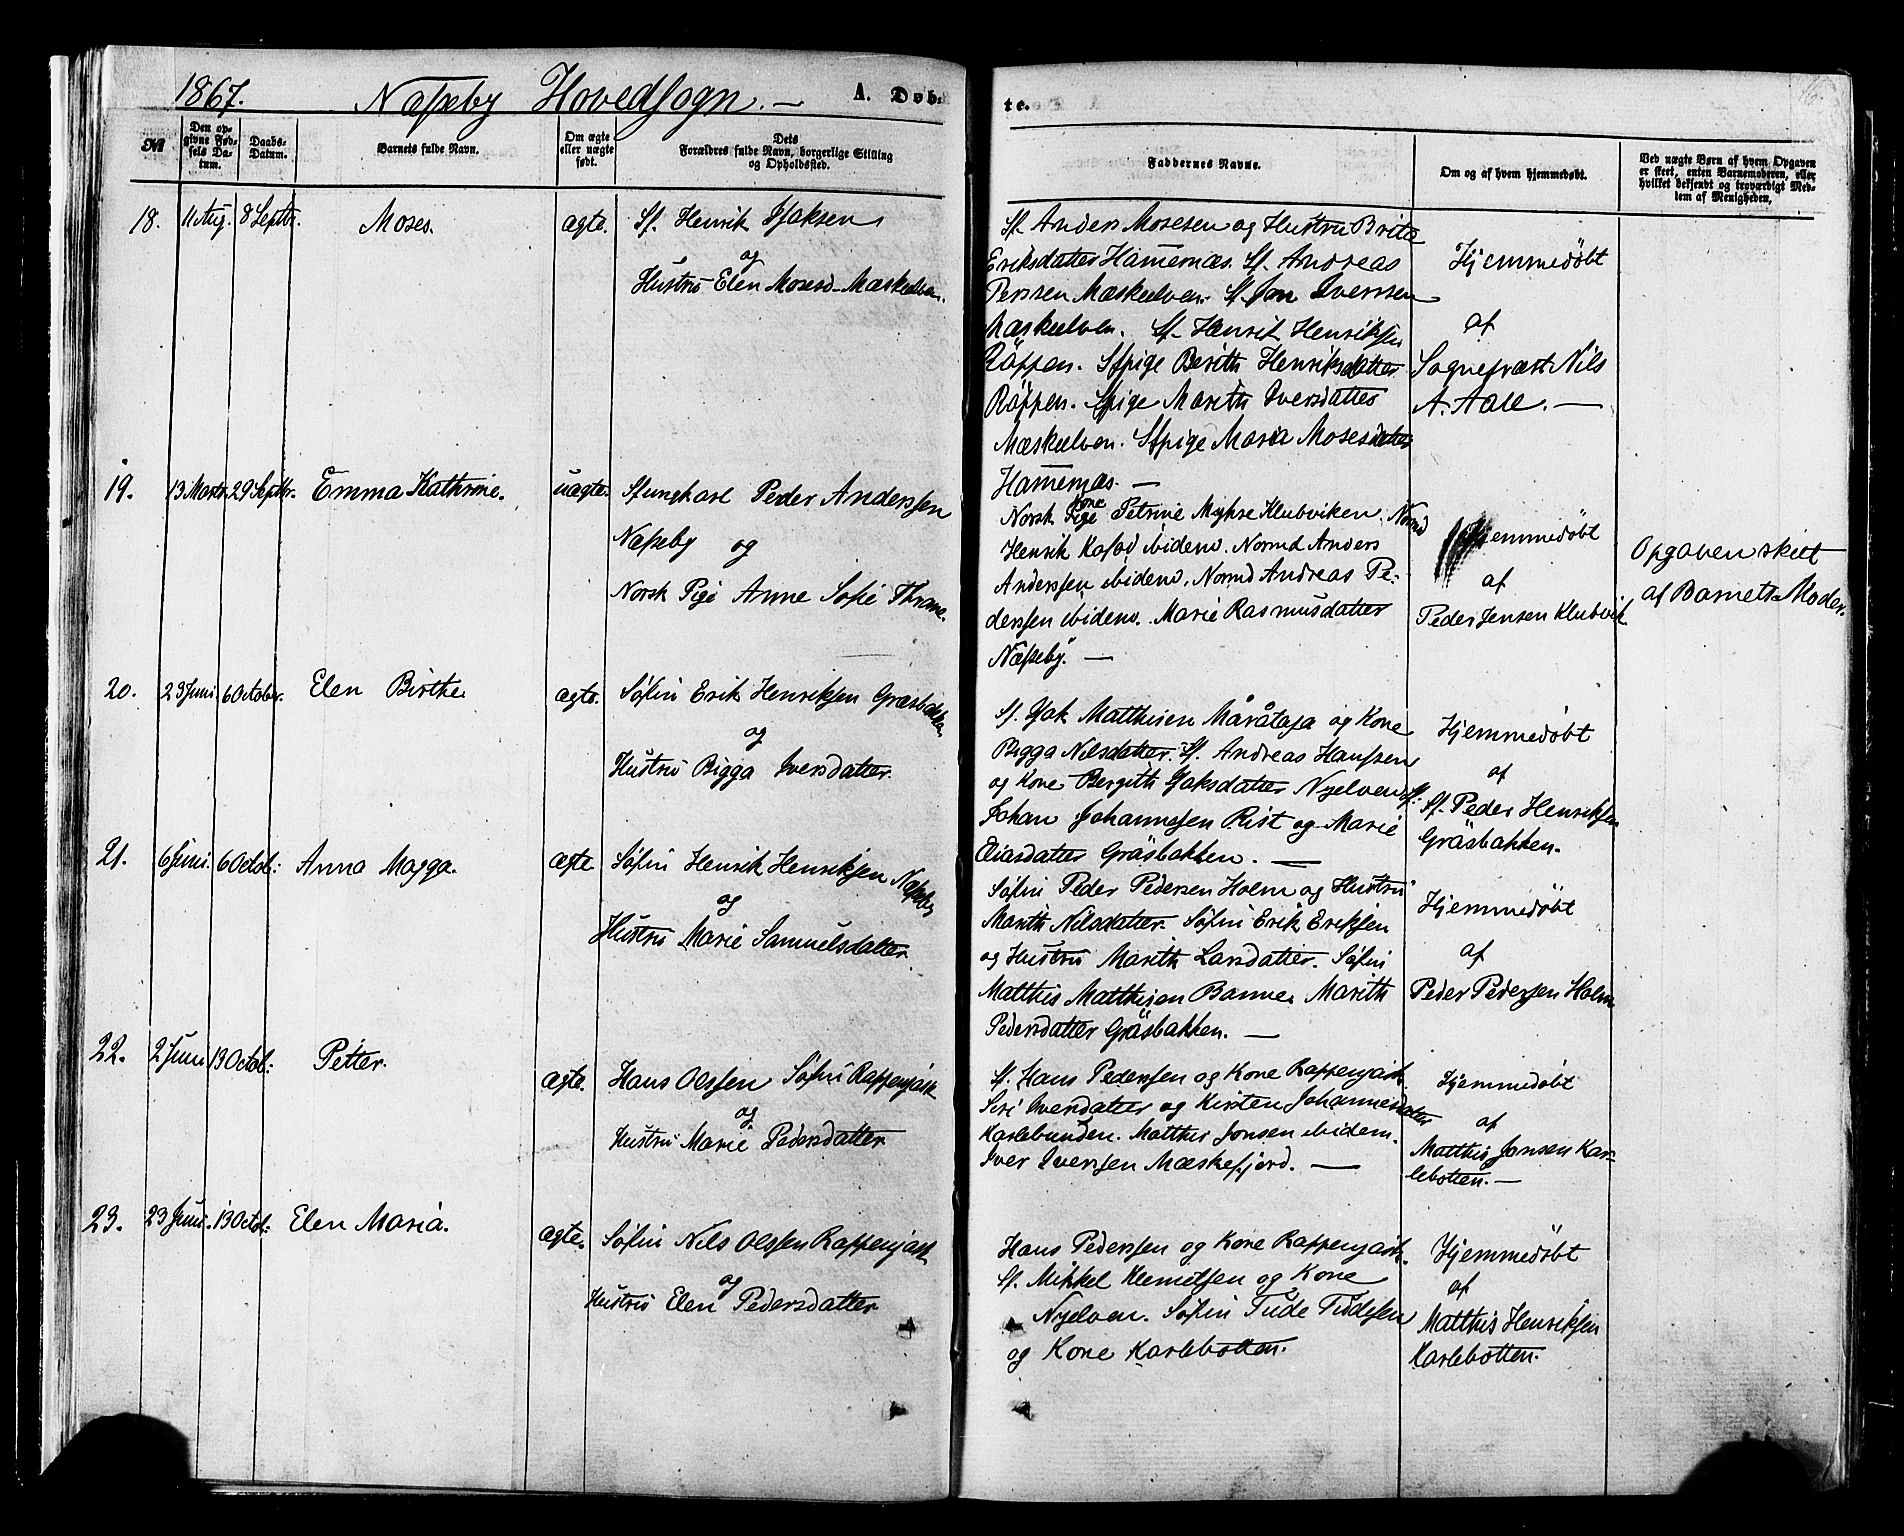 1867.
Næsseby Hovedsogn. —
A. Døb-
te.
№
Den op-
givne Fød-
sels Da-
tum.
Daabs-
Datum.
Barnets fulde Navn.
Om ægte
eller uægte
født.
Dets
Forældres fulde Navn, borgerlige Stilling
og Opholdssted.
Faddernes Navne.
Om og af hvem hjemmedøbt.
Ved uægte Børn af hvem Opgaven
er skeet, enten Barnemoderen, eller
hvilket bekjendt og troværdigt Med-
lem af Menigheden.
18.
11 Aug.
8 Septbr.
Moses.
ægte.
Sf. Henrik Isaksen
og
Hustru Elen Mosesd Mæskelven.
Sf. Anders Mosesen og Hustru Brita
Eriksdatter Hamernæs. Sf. Andreas
Perssen Mæskelven. Sf. Jon Iverssen
Mæskelven. Sf. Henrik Henriksen
Röppen. Sfpige Berith Henriksdatter
Röppen. Sfpige Marith Iversdatter
Mæskelven. Sfpige Maria Mosesdatter
Hamernæs. —
Hjemmedøbt
af
Sognepræst Nils
A. Aall. —
19.
13 Marts
29 Septbr.
Emma Kathrine.
uægte.
Sfungkarl Peder Anderssen
Næsseby og
Norsk Pige Anne Sofie Thrane.
Norsk Kone Petrine Myhre Klubviken. Normd
Henrik Kofod ibidem. Normd Anders
Anderssen ibidem. Normd Andreas Pe-
derssen ibidem. Marie Rasmusdatter
Næsseby. —
Hjemmedøbt
af
Peder Jensen Klubvik
Opgaven skeet
af Barnets Moder.
20.
23 Juni.
6 October.
Elen Birthe.
ægte.
Søfin Erik Henriksen Græsbakken
og
Hustru Bigga Iversdatter.
Sf. Isak Matthisen Måråtaja og Kone
Bigga Nilsdatter. Sf. Andreas Hanssen
og Kone Bergith Isaksdatter Nyelven. Sf.
Johan Johannesen Rist og Marie
Eliasdatter Gräsbakken. —
Hjemmedøbt
af
Sf. Peder Henriksen
Gräsbakken.
21.
6 Juni.
6 Octob:
Anna Magga.
ægte
Søfin Henrik Henriksen Næsseby
og
Hustru Marie Samuelsdatter.
Søfin Peder Pedersen Holm og Hustru
Marith Nilsdatter. Søfin Erik Eriksen
og Hustru Marith Larsdatter. Søfin
Matthis Matthisen Banne. Marith
Pedersdatter Gräsbakken. —
Hjemmedøbt
af
Peder Pedersen Holm
22.
2 Juni
13 Octob:
Petter.
ægte.
Hans Olssen Søfin Rappenjask
og
Hustru Marie Pedersdatter.
Sf. Hans Pederssen og Kone Rappenjask.
Siri Iversdatter og Kirsten Johannesdatter
Karlebunden. Matthis Jonsen ibidem.
Iver Iverssen Mæskefjord. —
Hjemmedøbt
af
Matthis Jonsen Kar-
lebotten. —
23.
23 Juni.
13 Octob:
Elen Maria.
ægte.
Søfin Nils Olssen Rappenjask
og
Hustru Elen Pedersdatter.
Hans Pederssen og Kone Rappenjask.
Sf. Mikkel Klemetsen og Kone
Nyelven. Søfin Tude Tudesen
og Kone Karlebotten.
Hjemmedøbt
af
Matthis Henriksen
Karlebotten.